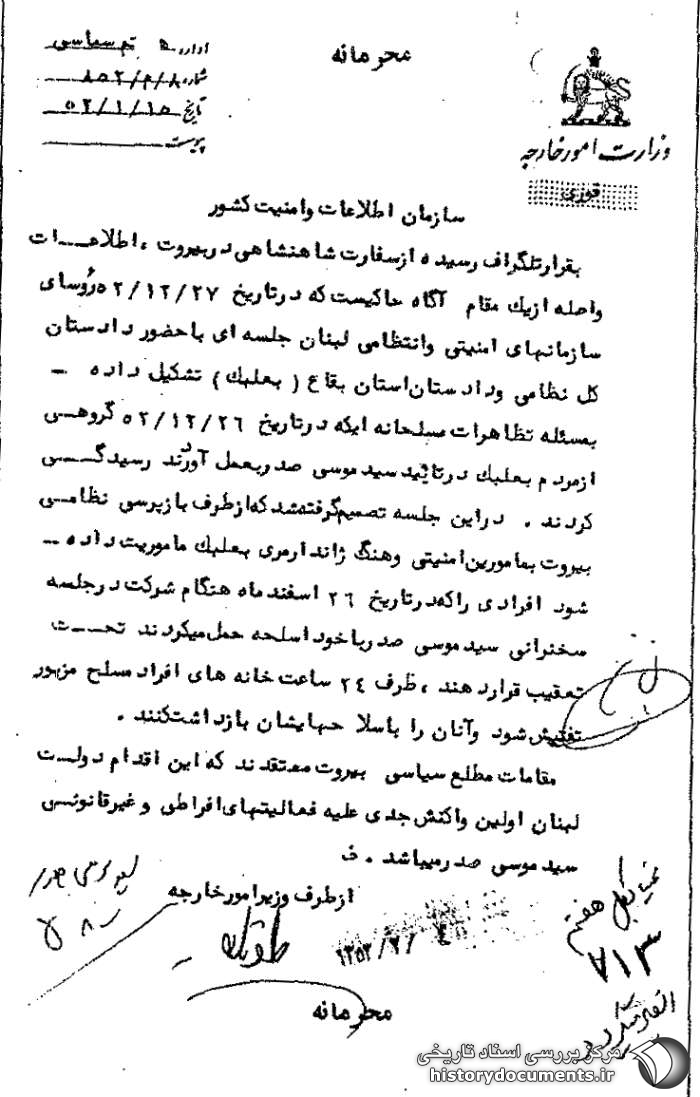 محرمانه
اداره ۵ تم سیاسی
شماره ۸۵۲/م/۸
تاریخ ۵۲/۱/۱۵
پیوست
وزارت امور خارجه
فوری
سازمان اطلاعات و امنیت کشور
بقرار تلگراف رسیده از سفارت شاهنشاهی در بیروت ، اطلاعات
واصله از یك مقام آگاه حاکیست که در تاریخ ۵۲/۱۲/۲۷ رؤسای
سازمانهای امنیتی وانتظامی لبنان جلسه ای با حضور دادستان
کل نظامی ودادستان استان بقاع ( بعلبك ) تشکیل داده –
بمسئله تظاهرات مسلحانه ایکه در تاریخ ۵۲/۱۲/۲۶ گروهی
از مردم بعلبك در تائید سید موسی صدر بعمل آوردند رسیدگی
کردند . در این جلسه تصمیم گرفته شد که از طرف بازپرسی نظامی
بیروت بمامورین امنیتی وهنگ ژاندارمری بعلبك ماموریت داده –
شود افرادی را که در تاریخ ۲۶ اسفند ماه هنگام شرکت در جلسه
سخنرانی سید موسی صدر با خود اسلحه حمل میکردند تحت
تعقیب قرار دهند ، ظرف ۲٤ ساعت خانه های افراد مسلح مزبور
تفتیش شود وآنان را با سلاحهایشان بازداشت کنند .
مقامات مطلع سیاسی بیروت معتقدند که این اقدام دولت
لبنان اولین واکنش جدی علیه فعالیتهای افراطی و غیر قانونی
سید موسی صدر میباشد . ف
از طرف وزیر امور خارجه
محرمانه
بخش
هفتم
۷۱۳
مرکز بررسی اسناد تاریخی
historydocuments.ir